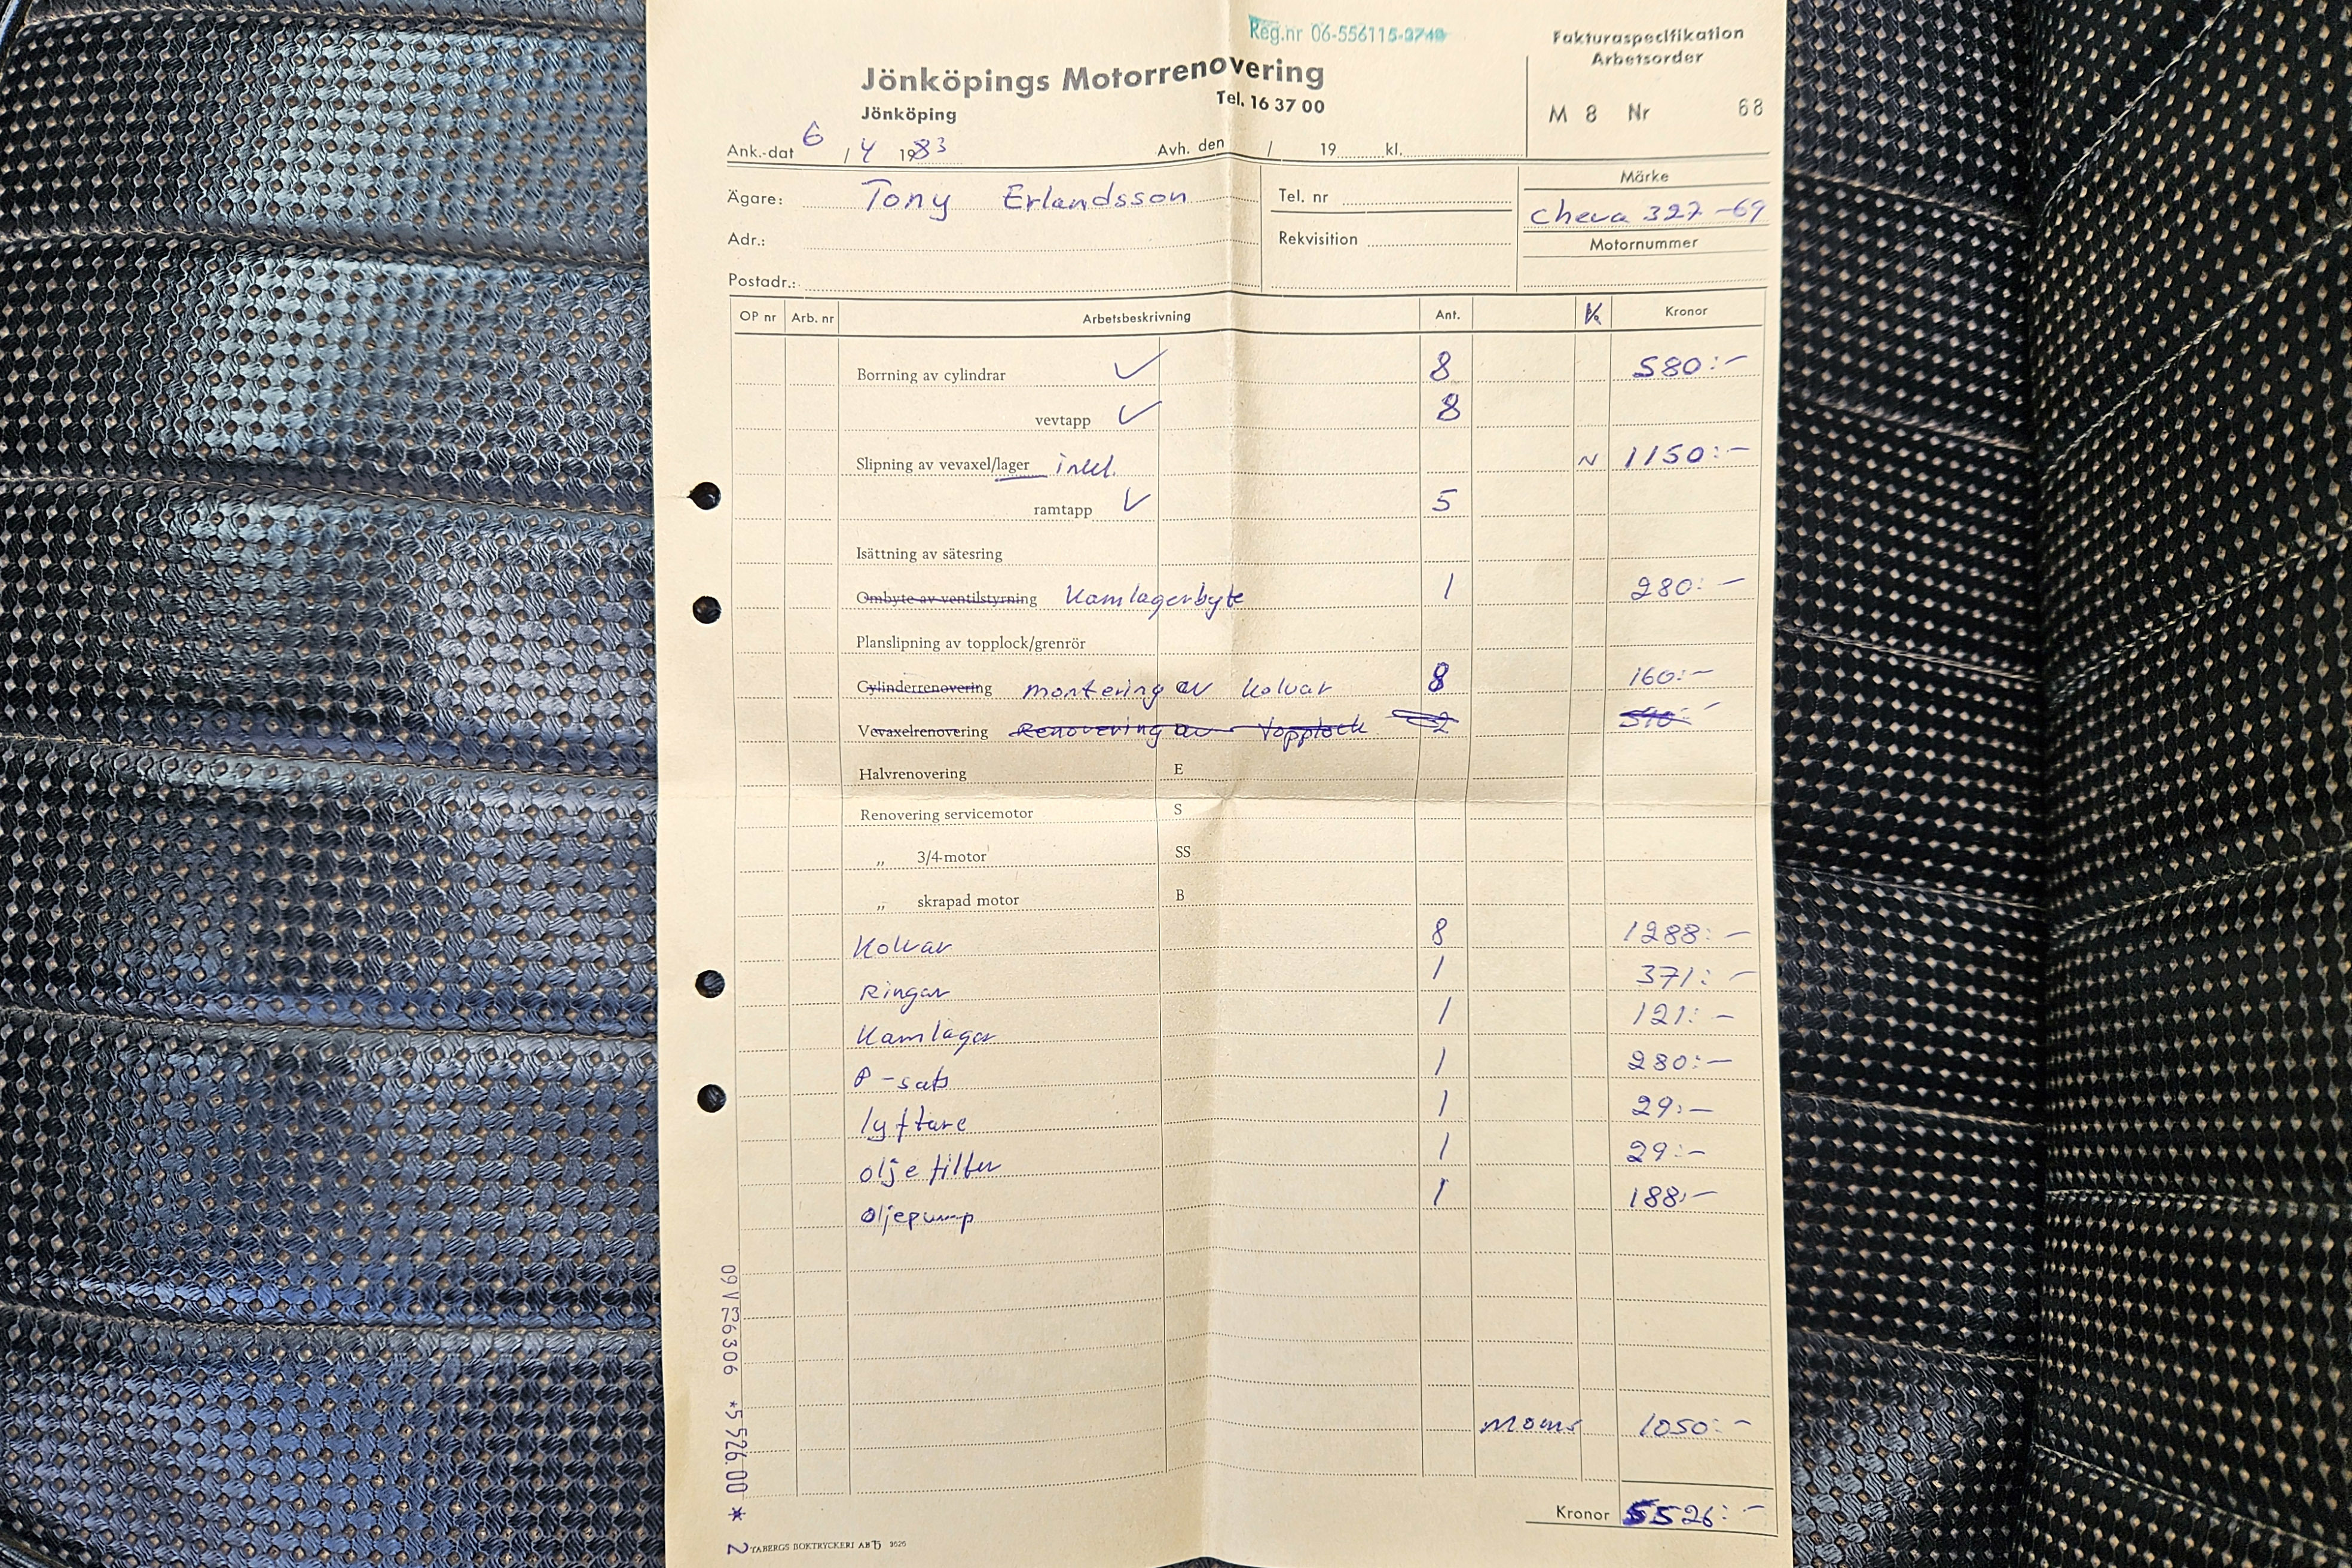 Reg.nr 06-556115-0740
Jönköpings Motorrenovering
Jönköping
Tel. 16 37 00
Fakturaspecifikation
Arbetsorder
M 8 Nr 68
Ank.-dat 6 / 4 1983 Avh. den / 19 kl.
Ägare: Tony Erlandsson
Tel. nr
Märke
Cheva 327 -69
Adr.:
Rekvisition
Motornummer
Postadr.:
OP nr Arb. nr Arbetsbeskrivning Ant. Kronor
Borrning av cylindrar ✓ 8 580:-
vevtapp ✓ 8
Slipning av vevaxel/lager inkl. N 1150:-
ramtapp ✓ 5
Isättning av sätesring
Ombyte av ventilstyrning Kamlagerbyte 1 280:-
Planslipning av topplock/grenrör
Cylinderrenovering montering av kolvar 8 160:-
Vevaxelrenovering Renovering av topplock 2
Halvrenovering E
Renovering servicemotor S
„ 3/4-motor SS
„ skrapad motor B
Kolvar 8 1288:-
Ringar 1 371:-
Kamlager 1 121:-
P-sats 1 280:-
lyftare 1 29:-
oljefilter 1 29:-
oljepump 1 188:-
Moms 1050:-
Kronor 5526:-
09 V 26306 *5 526.00 *
2
TABERGS BOKTRYCKERI AB